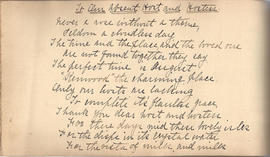 To Our Absent Host and Hostess
Never a rose without a thorne,
Seldom a cloudless day
The time and the place and the loved one
are not found together they say
The perfect time is August
Glenwood the charming place
Only our hosts are lacking
To complete its faultless grace,
Thank you dear host and hostess
For these days mid these lovely isles
For the ships in the crystal water
For the vista of miles and miles